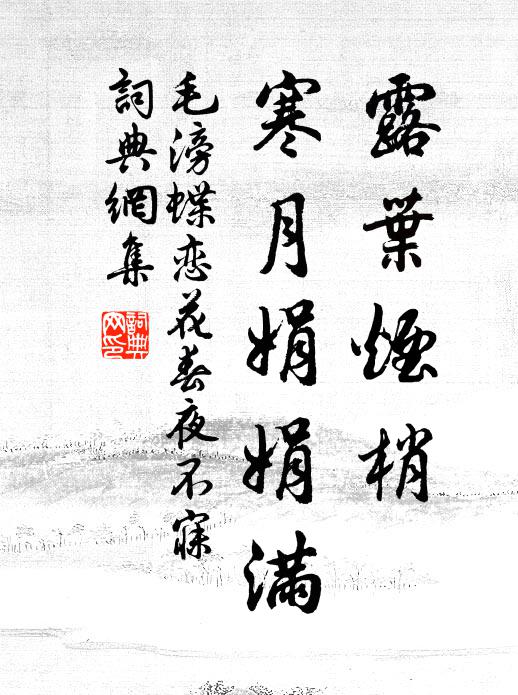 露葉煙梢
寒月娟娟滿
毛滂蝶恋花春夜不寐
詞典網集
詞典
网印